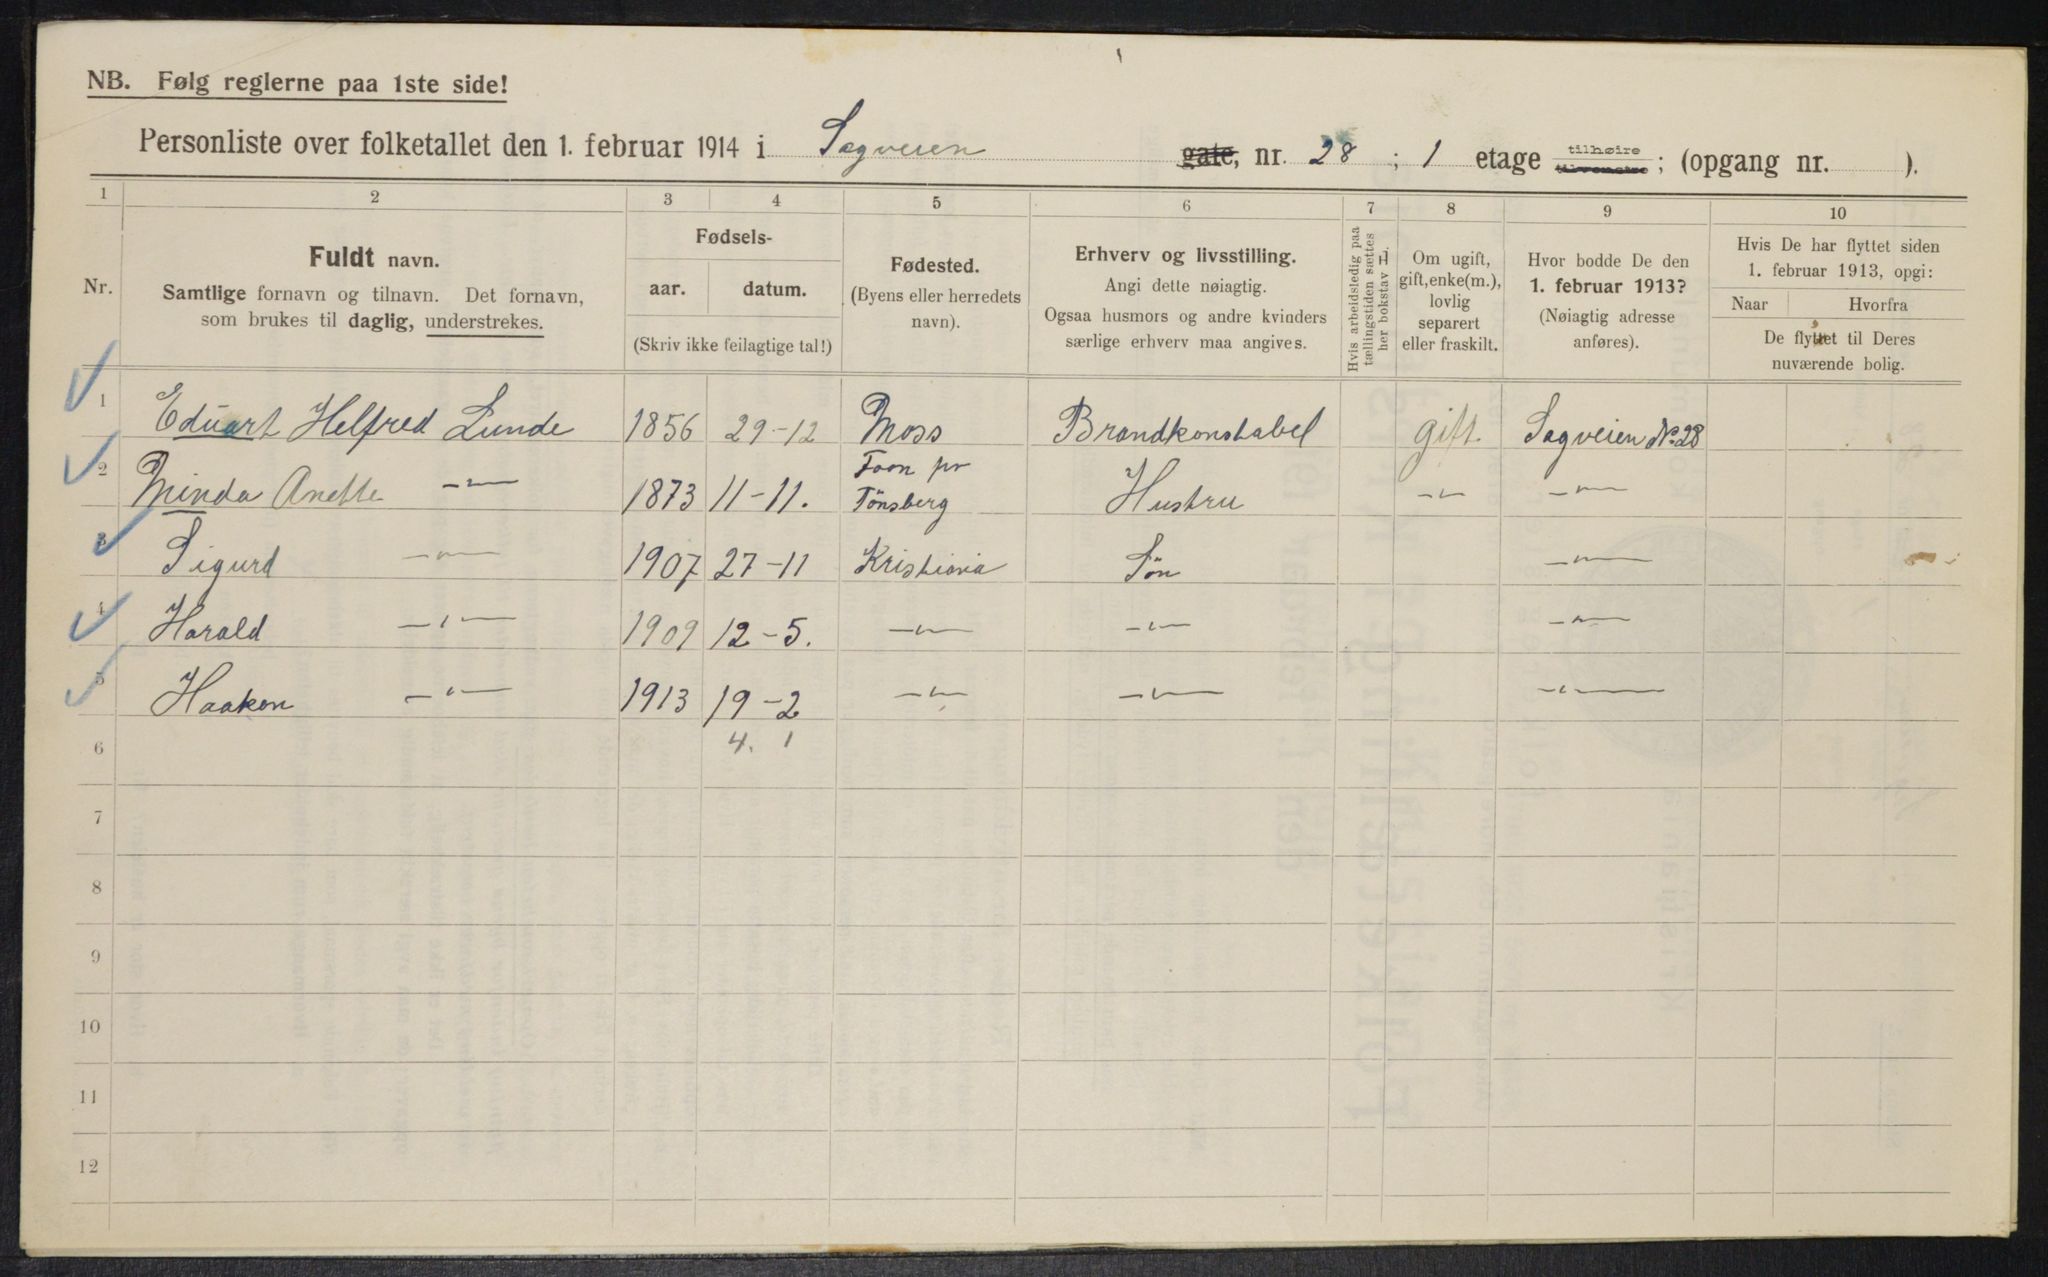 NB. Følg reglerne paa 1ste side!
Personliste over folketallet den 1. februar 1914 i Sagveien gate, nr. 28 ; 1 etage tilhøire tilvenstre ; (opgang nr. ).
1 2 3 4 5 6 7 8 9 10
Nr.
Fuldt navn.
Samtlige fornavn og tilnavn. Det fornavn,
som brukes til daglig, understrekes.
Fødsels-
aar. datum.
(Skriv ikke feilagtige tal!)
Fødested.
(Byens eller herredets
navn).
Erhverv og livsstilling.
Angi dette nøiagtig.
Ogsaa husmors og andre kvinders
særlige erhverv maa angives.
Hvis arbeidsledig paa
tællingstiden sættes
her bokstav L.
Om ugift,
gift, enke(m.),
lovlig
separert
eller fraskilt.
Hvor bodde De den
1. februar 1913?
(Nøiagtig adresse
anføres).
Hvis De har flyttet siden
1. februar 1913, opgi:
Naar Hvorfra
De flyttet til Deres
nuværende bolig.
1 Eduart Helfred Lunde 1856 29-12 Moss Brandkonstabel gift. Sagveien No. 28
2 Minda Anette -"- 1873 11-11. Foon pr Tönsberg Hustru -"- -"-
3 Sigurd -"- 1907 27-11 Kristiania Sön -"-
4 Harald -"- 1909 12-5. -"- -"- -"-
5 Haakon -"- 1913 19-2 -"- -"- -"-
6 4. 1
7
8
9
10
11
12